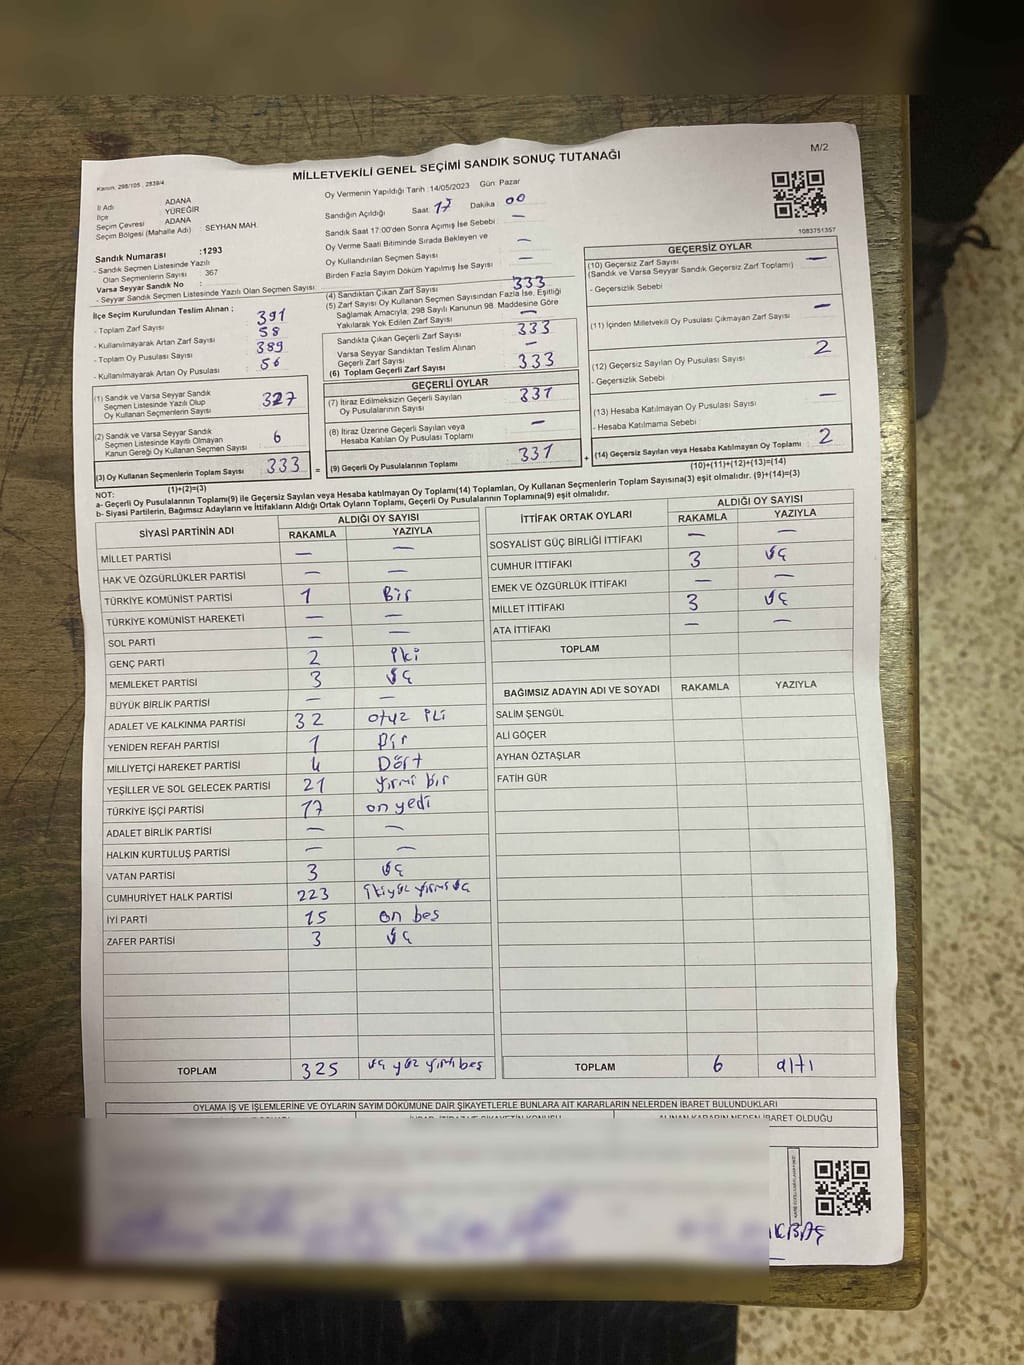 Kanun, 298/105 , 2839/4
MİLLETVEKİLİ GENEL SEÇİMİ SANDIK SONUÇ TUTANAĞI
M/2
İl Adı : ADANA
İlçe : YÜREĞİR
Seçim Çevresi : ADANA
Seçim Bölgesi (Mahalle Adı) SEYHAN MAH.
Sandık Numarası :1293
- Sandık Seçmen Listesinde Yazılı
Olan Seçmenlerin Sayısı : 367
Varsa Seyyar Sandık No :
- Seyyar Sandık Seçmen Listesinde Yazılı Olan Seçmen Sayısı:
Oy Vermenin Yapıldığı Tarih :14/05/2023 Gün Pazar
Sandığın Açıldığı Saat 17 Dakika 00
Sandık Saat 17.00'den Sonra Açımış İse Sebebi : —
Oy Verme Saati Bitiminde Sırada Bekleyen ve
Oy Kullandırılan Seçmen Sayısı —
Birden Fazla Sayım Döküm Yapılmış İse Sayısı —
1083751357
İlçe Seçim Kurulundan Teslim Alınan ;
- Toplam Zarf Sayısı 391
- Kullanılmayarak Artan Zarf Sayısı 58
- Toplam Oy Pusulası Sayısı 389
- Kullanılmayarak Artan Oy Pusulası 56
(1) Sandık ve Varsa Seyyar Sandık
Seçmen Listesinde Yazılı Olup
Oy Kullanan Seçmenlerin Sayısı 327
(2) Sandık ve Varsa Seyyar Sandık
Seçmen Listesinde Kayıtlı Olmayan
Kanun Gereği Oy Kullanan Seçmen Sayısı 6
(3) Oy Kullanan Seçmenlerin Toplam Sayısı 333 =
(1)+(2)=(3)
(4) Sandıktan Çıkan Zarf Sayısı 333
(5) Zarf Sayısı Oy Kullanan Seçmen Sayısından Fazla İse, Eşitliği
Sağlamak Amacıyla; 298 Sayılı Kanunun 98. Maddesine Göre
Yakılarak Yok Edilen Zarf Sayısı —
Sandıkta Çıkan Geçerli Zarf Sayısı 333
Varsa Seyyar Sandıktan Teslim Alınan
Geçerli Zarf Sayısı —
(6) Toplam Geçerli Zarf Sayısı 333
GEÇERLİ OYLAR
(7) İtiraz Edilmeksizin Geçerli Sayılan
Oy Pusulalarının Sayısı 331
(8) İtiraz Üzerine Geçerli Sayılan veya
Hesaba Katılan Oy Pusulası Toplamı —
(9) Geçerli Oy Pusulalarının Toplamı 331 +
GEÇERSİZ OYLAR
(10) Geçersiz Zarf Sayısı —
(Sandık ve Varsa Seyyar Sandık Geçersiz Zarf Toplamı)
- Geçersizlik Sebebi
(11) İçinden Milletvekili Oy Pusulası Çıkmayan Zarf Sayısı —
(12) Geçersiz Sayılan Oy Pusulası Sayısı 2
- Geçersizlik Sebebi
(13) Hesaba Katılmayan Oy Pusulası Sayısı —
- Hesaba Katılmama Sebebi
(14) Geçersiz Sayılan veya Hesaba Katılmayan Oy Toplamı 2
(10)+(11)+(12)+(13)=(14)
NOT:
a- Geçerli Oy Pusulalarının Toplamı(9) ile Geçersiz Sayılan veya Hesaba katılmayan Oy Toplamı(14) Toplamları, Oy Kullanan Seçmenlerin Toplam Sayısına(3) eşit olmalıdır. (9)+(14)=(3)
b- Siyasi Partilerin, Bağımsız Adayların ve İttifakların Aldığı Ortak Oyların Toplamı, Geçerli Oy Pusulalarının Toplamına(9) eşit olmalıdır.
SİYASİ PARTİNİN ADI ALDIĞI OY SAYISI
RAKAMLA YAZIYLA
MİLLET PARTİSİ — —
HAK VE ÖZGÜRLÜKLER PARTİSİ — —
TÜRKİYE KOMÜNİST PARTİSİ 1 Bir
TÜRKİYE KOMÜNİST HAREKETİ — —
SOL PARTİ — —
GENÇ PARTİ 2 İki
MEMLEKET PARTİSİ 3 üç
BÜYÜK BİRLİK PARTİSİ — —
ADALET VE KALKINMA PARTİSİ 32 otuz iki
YENİDEN REFAH PARTİSİ 1 Bir
MİLLİYETÇİ HAREKET PARTİSİ 4 Dört
YEŞİLLER VE SOL GELECEK PARTİSİ 21 yirmi bir
TÜRKİYE İŞÇİ PARTİSİ 17 on yedi
ADALET BİRLİK PARTİSİ — —
HALKIN KURTULUŞ PARTİSİ — —
VATAN PARTİSİ 3 üç
CUMHURİYET HALK PARTİSİ 223 ikiyüz yirmi üç
İYİ PARTİ 15 on beş
ZAFER PARTİSİ 3 üç
TOPLAM 325 üç yüz yirmi beş
İTTİFAK ORTAK OYLARI ALDIĞI OY SAYISI
RAKAMLA YAZIYLA
SOSYALİST GÜÇ BİRLİĞİ İTTİFAKI — —
CUMHUR İTTİFAKI 3 üç
EMEK VE ÖZGÜRLÜK İTTİFAKI — —
MİLLET İTTİFAKI 3 üç
ATA İTTİFAKI — —
TOPLAM
BAĞIMSIZ ADAYIN ADI VE SOYADI RAKAMLA YAZIYLA
SALİM ŞENGÜL
ALİ GÖÇER
AYHAN ÖZTAŞLAR
FATİH GÜR
TOPLAM 6 altı
OYLAMA İŞ VE İŞLEMLERİNE VE OYLARIN SAYIM DÖKÜMÜNE DAİR ŞİKAYETLERLE BUNLARA AİT KARARLARIN NELERDEN İBARET BULUNDUKLARI
ALINAN KARARIN NEDEN İBARET OLDUĞU